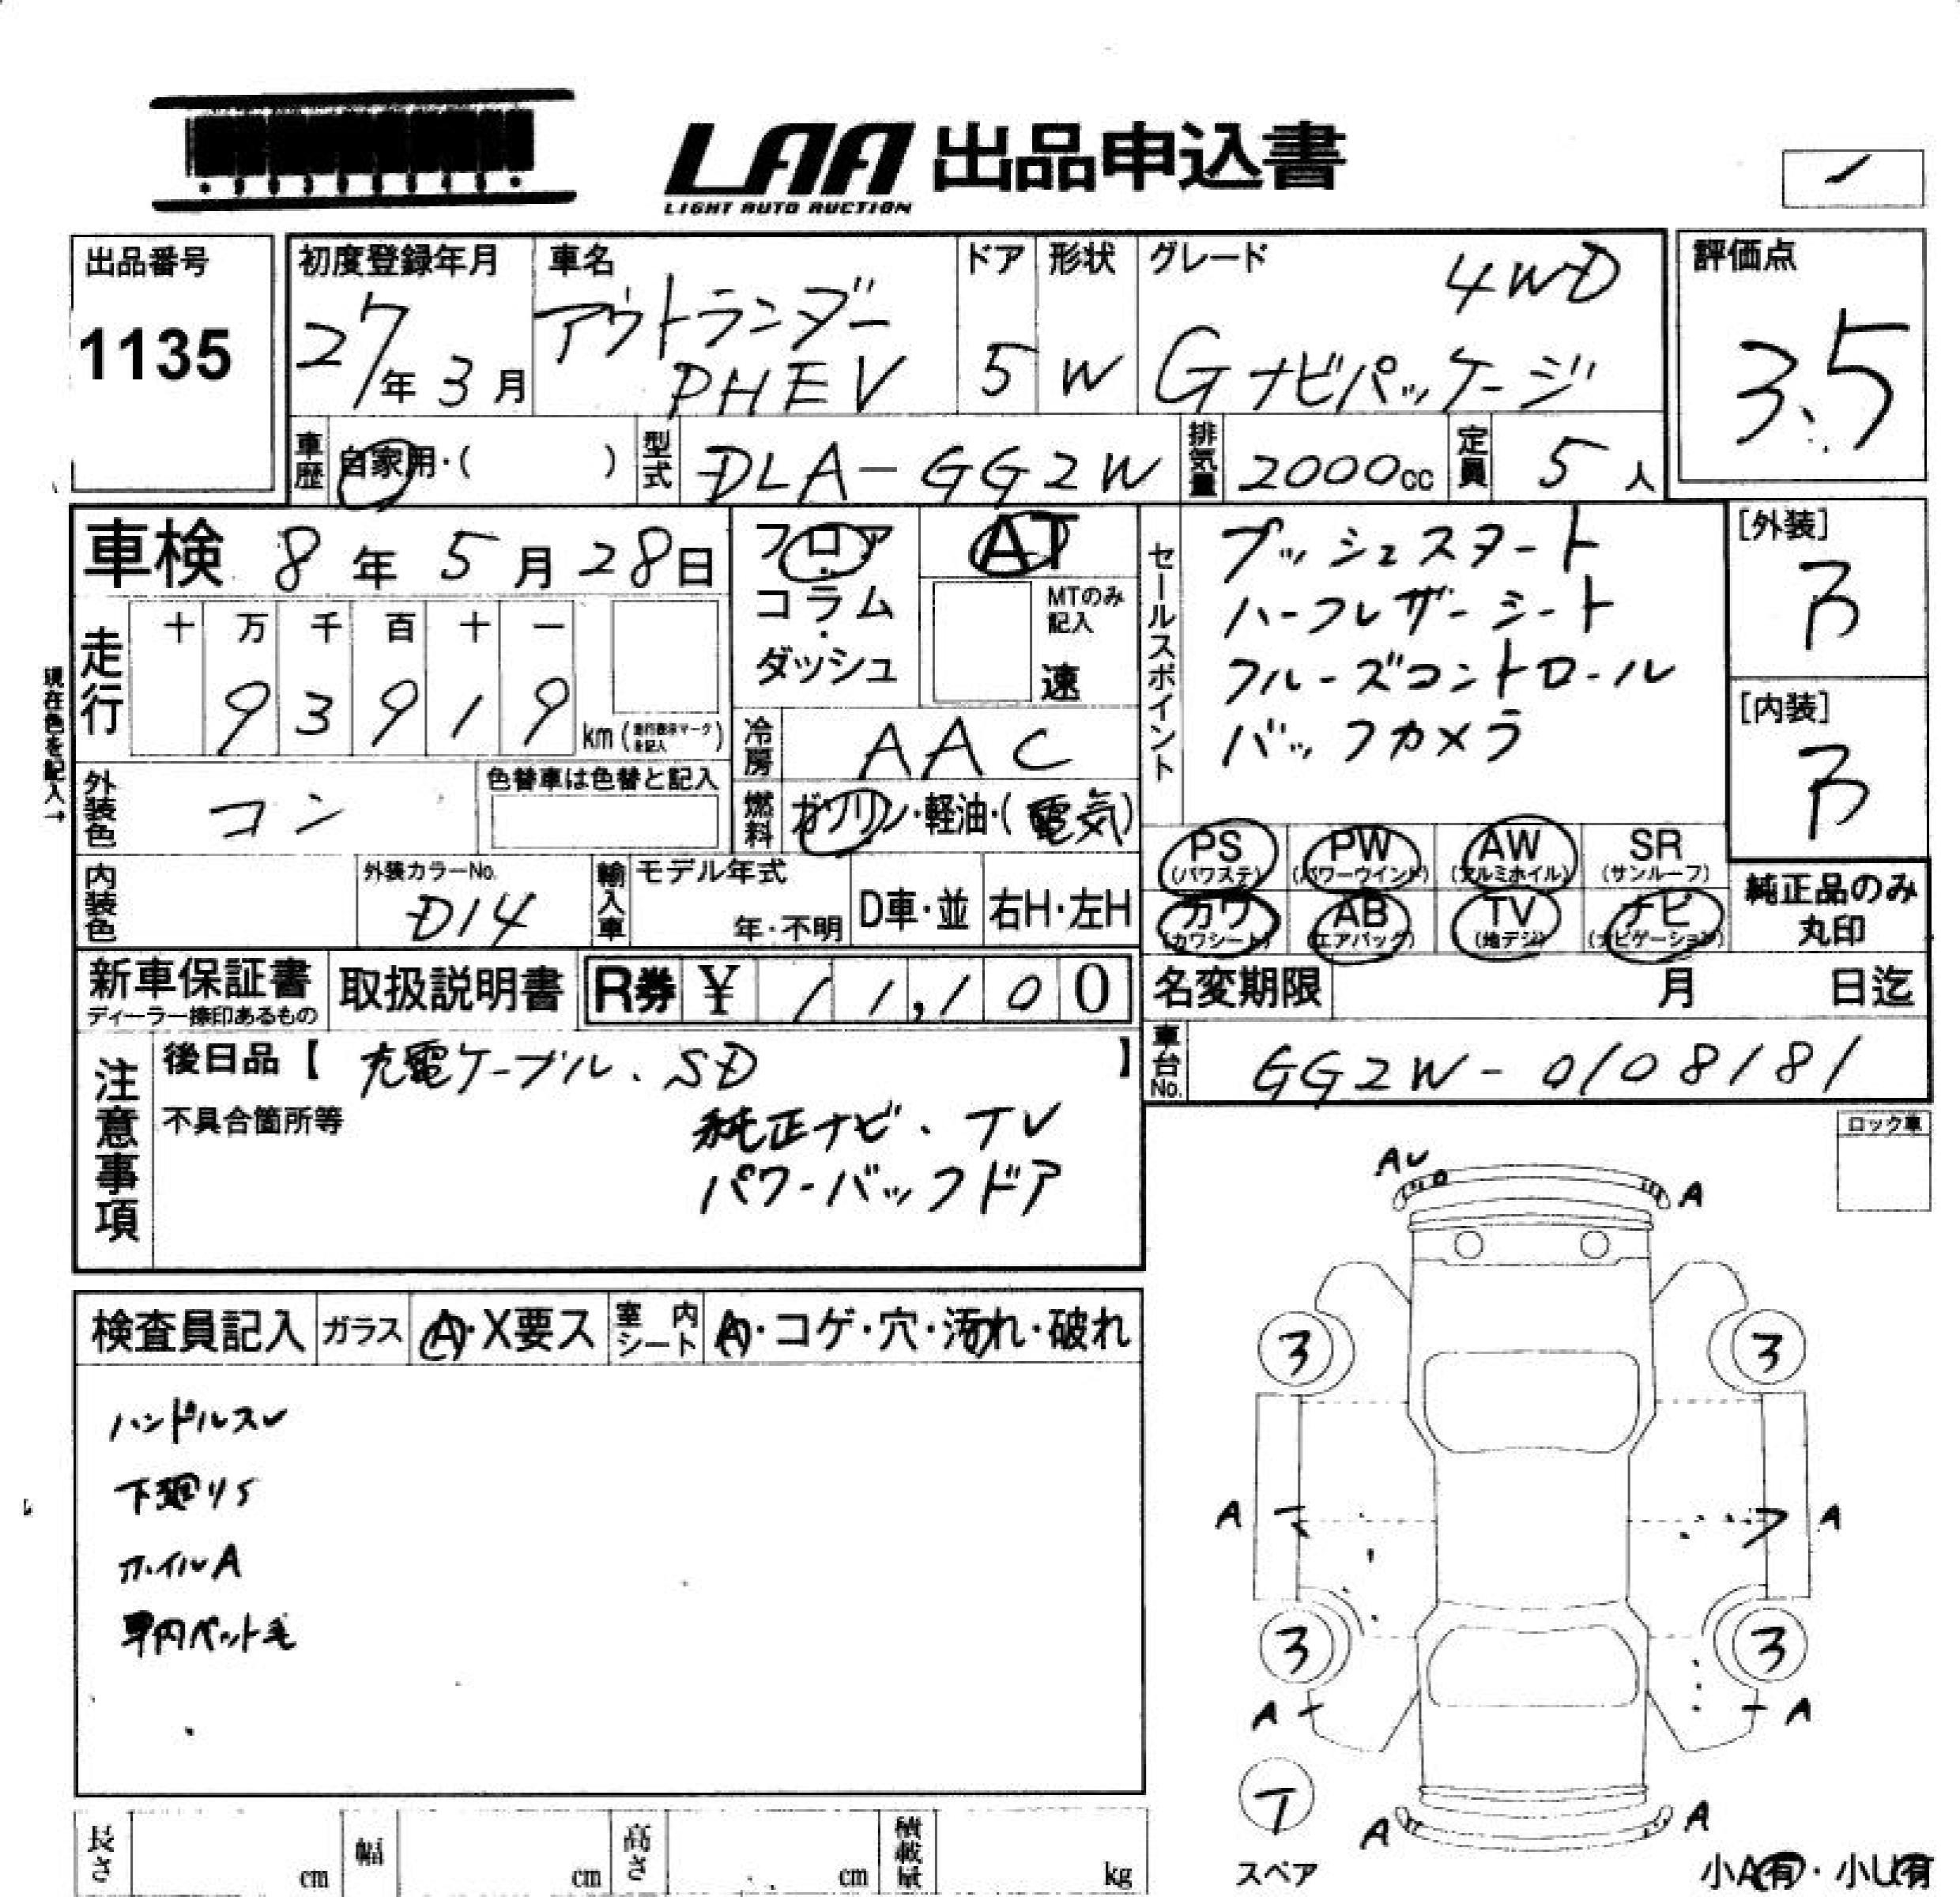 LAA 出品申込書
LIGHT AUTO AUCTION
出品番号
1135
初度登録年月
27年3月
車名
アウトランダー
PHEV
ドア
5
形状
W
グレード
4WD
Gナビパッケージ
評価点
3.5
車歴
自家用・( )
型式
DLA-GG2W
排気量
2000cc
定員
5人
車検 8年5月28日
フロア・コラム・ダッシュ
AT
MTのみ記入
速
セールスポイント
プッシュスタート
ハーフレザーシート
クルーズコントロール
バックカメラ
[外装]
B
[内装]
B
現在色を記入→
走行
十 万 千 百 十 一
9 3 9 1 9
km(走行表示マークを記入)
冷房
AAC
外装色
コン
色替車は色替と記入
燃料
ガソリン・軽油・(電気)
PS
(パワステ)
PW
(パワーウインド)
AW
(アルミホイル)
SR
(サンルーフ)
カワ
(カワシート)
AB
(エアバッグ)
TV
(地デジ)
ナビ
(ナビゲーション)
純正品のみ
丸印
内装色
外装カラーNo.
D14
輸入車
モデル年式
年・不明
D車・並
右H・左H
新車保証書
ディーラー捺印あるもの
取扱説明書
R券 ¥ 11,100
名変期限 月 日迄
車台No.
GG2W-0108181
注意事項
後日品【 充電ケーブル、SD 】
不具合箇所等
純正ナビ、TV
パワーバックドア
ロック車
検査員記入
ガラス
A・X要ス
室内シート
A・コゲ・穴・汚れ・破れ
ハンドルスレ
下廻りS
ホイルA
車内ペット毛
AU
A
3
3
A
A
3
3
A
A
T
スペア
A
A
小A有・小U有
長さ cm
幅 cm
高さ cm
積載量 kg